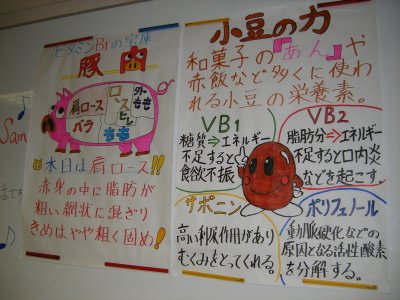 ビタミンB1の宝庫
豚肉
肩ロース
バラ
ロース
ヒレ
外もも
もも
本日は肩ロース!!
赤身の中に脂肪が
粗い網状に混ざり
きめはやや粗く固め!
Sain
小豆の力
和菓子の『あん』や
赤飯など多くに使わ
れる小豆の栄養素。
VB1
糖質⇒エネルギー
不足すると
食欲不振
VB2
脂肪分⇒エネルギー
不足すると口内炎
などを起こす
サポニン
高い利尿作用があり
むくみをとってくれる。
ポリフェノール
動脈硬化などの
原因となる活性酸素
を分解する。